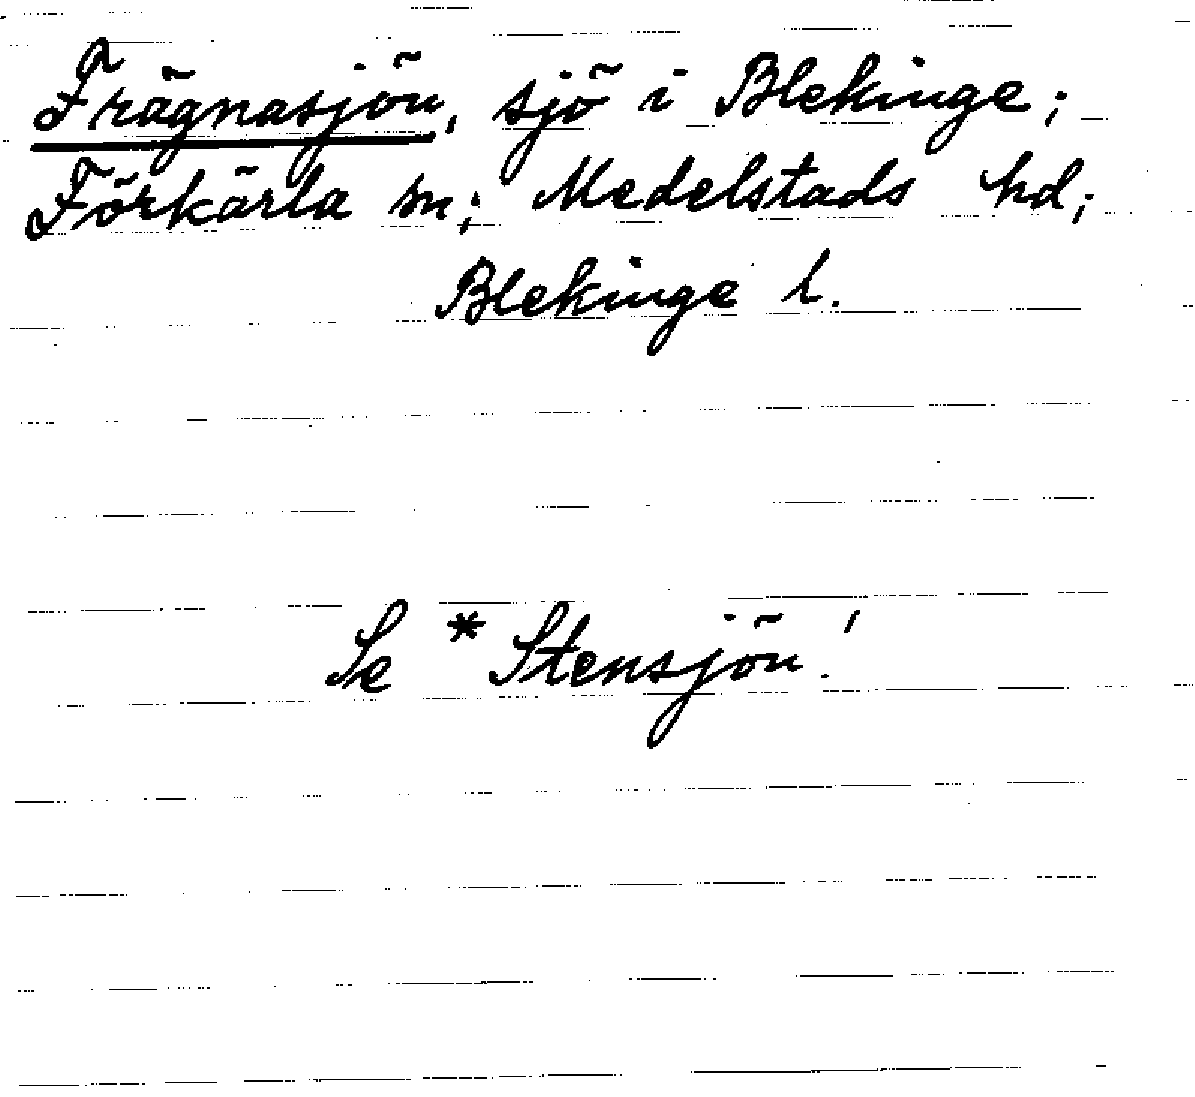 Frägnasjön, sjö i Blekinge;
Förkärla sn; Medelstads hd;
Blekinge l.
Se *Stensjön!